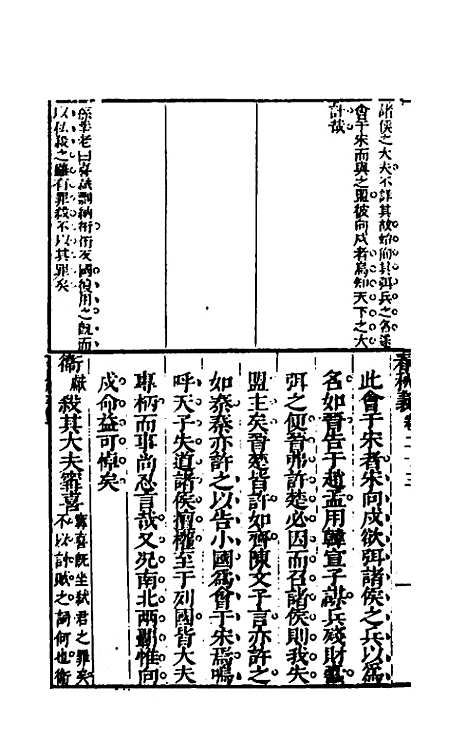 諸侯之大夫不詳其故始向其弭兵之名遂
會于宋而與之盟彼向戌者焉知天下之大
計哉
孫莘老曰寗喜弒剽納衎衎反國復用之既而
以私殺之雖有罪殺不以其罪矣
春秋義 卷二十三
此會于宋者宋向戌欲弭諸侯之兵以爲
名如晉告于趙孟用韓宣子謀兵殘財蠹
弭之便晉弗許楚必因而召諸侯則我失
盟主矣晉楚皆許如齊陳文子言亦許之
如秦秦亦許之以告小國爲會于宋焉嗚
呼天子失道諸侯擅權至于列國皆大夫
專柄而耶尚忍言哉又況南北兩霸惟向
戌命益可悼矣
衞獻殺其大夫寗喜 寗喜既坐弒君之罪矣
不以討賊之詞何也衞